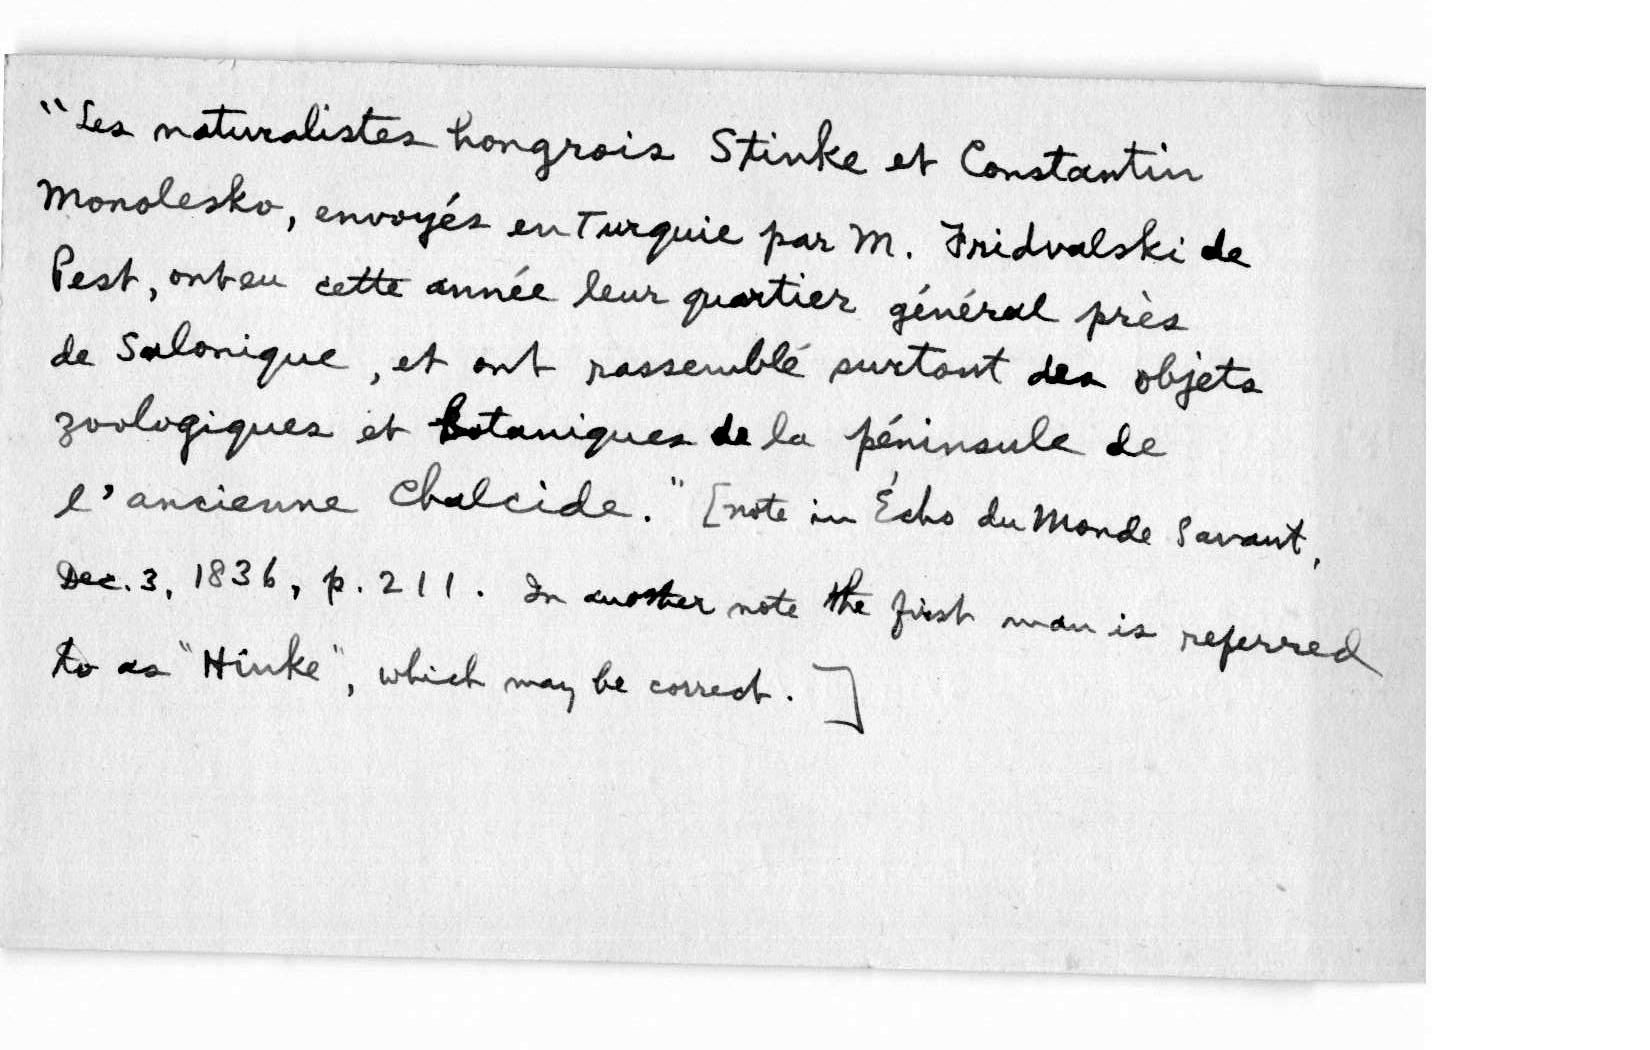 "Les naturalistes hongrois Stinke et Constantin
Monolesko, envoyés en Turquie par M. Fridvalski de
Pest, ont eu cette année leur quartier général près
de Salonique, et ont rassemblé surtout des objets
zoologiques et botaniques de la péninsule de
l'ancienne Chalcide." [note in Écho du Monde Savant,
Dec. 3, 1836, p. 211. In another note the first man is referred
to as "Hinke", which may be correct.]